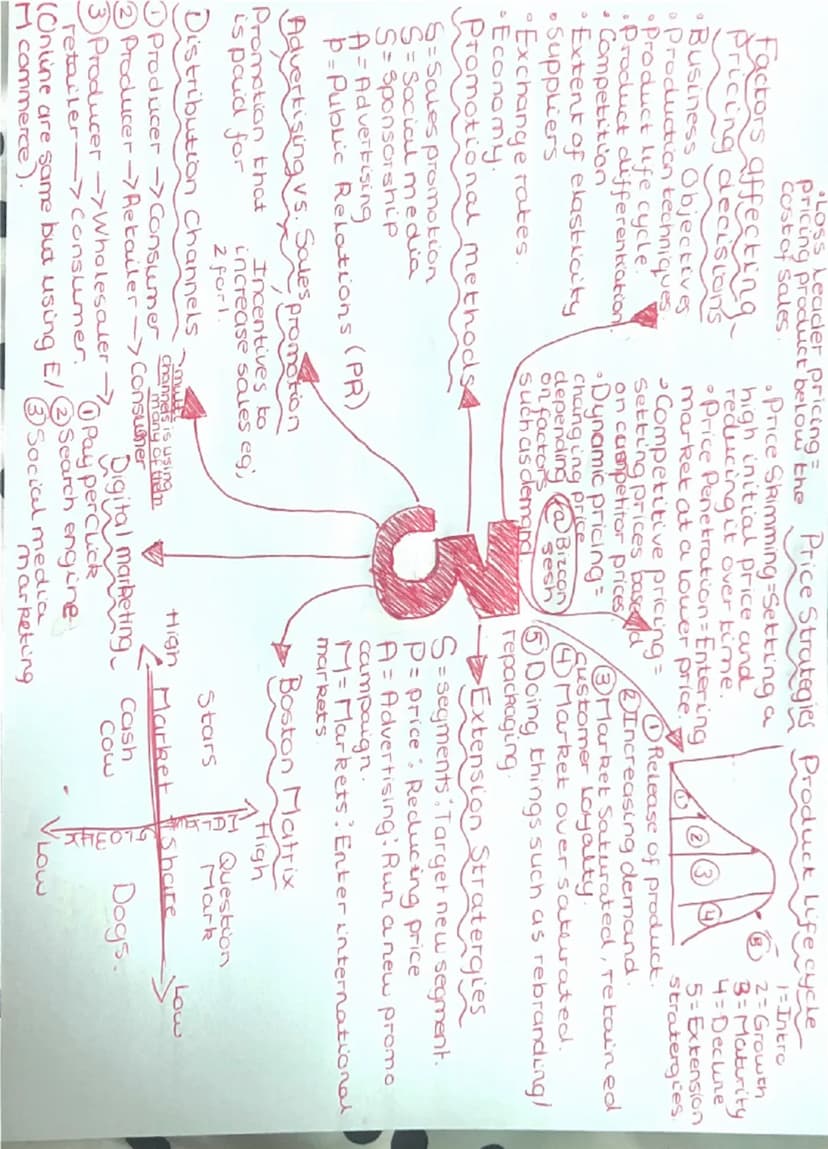 Factors affecting
pricing decisions
• Business Objectives
• Production techniques
• Product life cycle.
• Product differentiation
• Competition
• Extent of elasticity
• Suppliers
• Exchange rates.
• Economy.
Promotional methods
S = Sales promotion
S = Social media
S = Sponsorship
A = Advertising
P = Public Relations (PR)
Advertising vs. Sales promotion
Promotion that
is paid for
Incentives to
increase sales eg,
2 for 1.
Distribution Channels
→ multi
channels is using
many of them
① Producer → Consumer
② Producer → Retailer → Consumer
③ Producer → Wholesaler →
retailer → Consumer.
(Online are same but using E/
M commerce).
• Loss leader pricing =
pricing product below the
cost of sales.
Price Strategies
• Price Skimming = Setting a
high initial price and
reducing it over time.
• Price Penetration = Entering
market at a lower price.
• Competitive pricing =
Setting prices based
on competitor prices
• Dynamic pricing =
changing price
depending
on factors
such as demand
@Bizcon
sesh
3.3
Digital marketing
① Pay per click
② Search engine
③ Social media
marketing
Product Lifecycle
1 = Intro
2 = Growth
3 = Maturity
4 = Decline
5 = Extension
stratergies.
① ② ③ ④ ⑤
① Release of product.
② Increasing demand.
③ Market Saturated, retained
customer loyalty.
④ Market over saturated.
⑤ Doing things such as rebranding/
repackaging.
Extension Stratergies
S = segments: Target new segment.
P = price: Reducing price
A = Advertising: Run a new promo
campaign.
M = Markets: Enter international
markets.
Boston Matrix
High
High
Stars
Question
Mark
Market Share
Low
Cash
Cow
Dogs.
Low